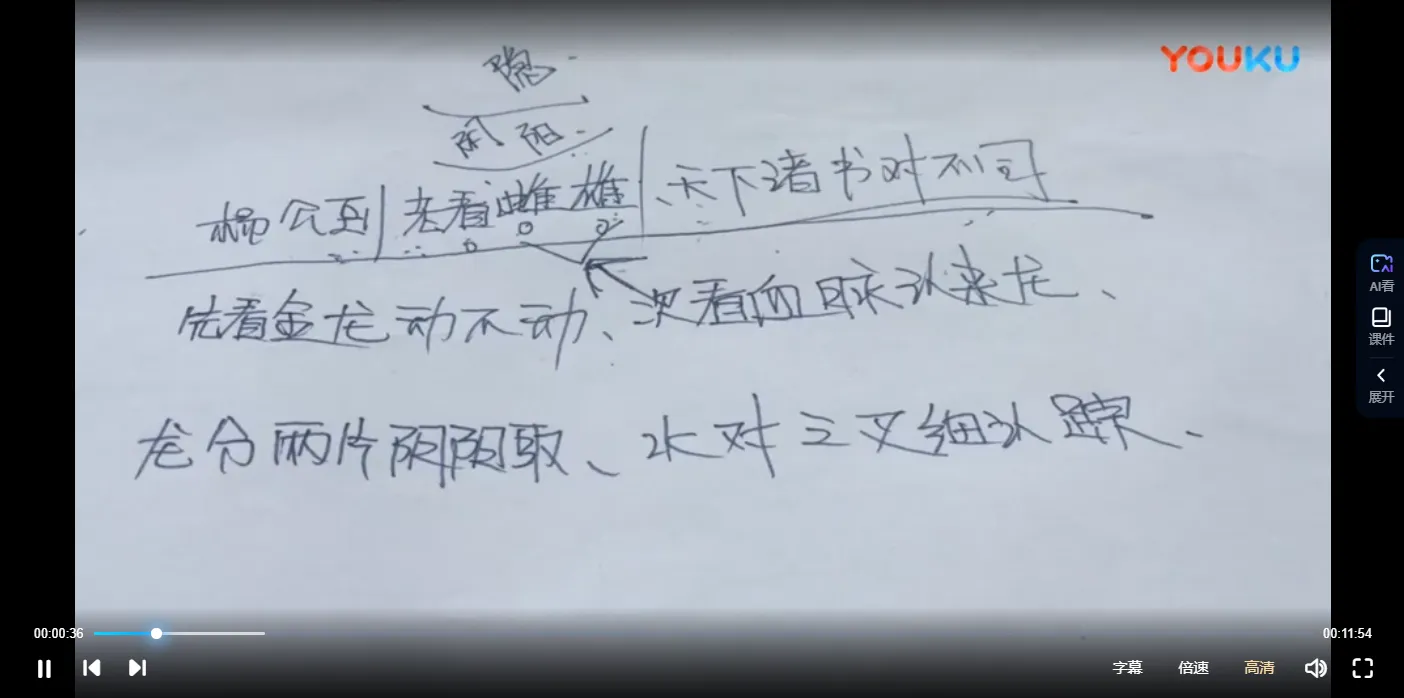 YOUKU
隐
阴阳
杨公到老看雌雄、天下诸书对不同
先看金龙动不动、次看血脉认来龙、
龙分两片阴阳取、水对三叉细认踪
AI看
课件
展开
00:00:36
00:11:54
字幕 倍速 高清